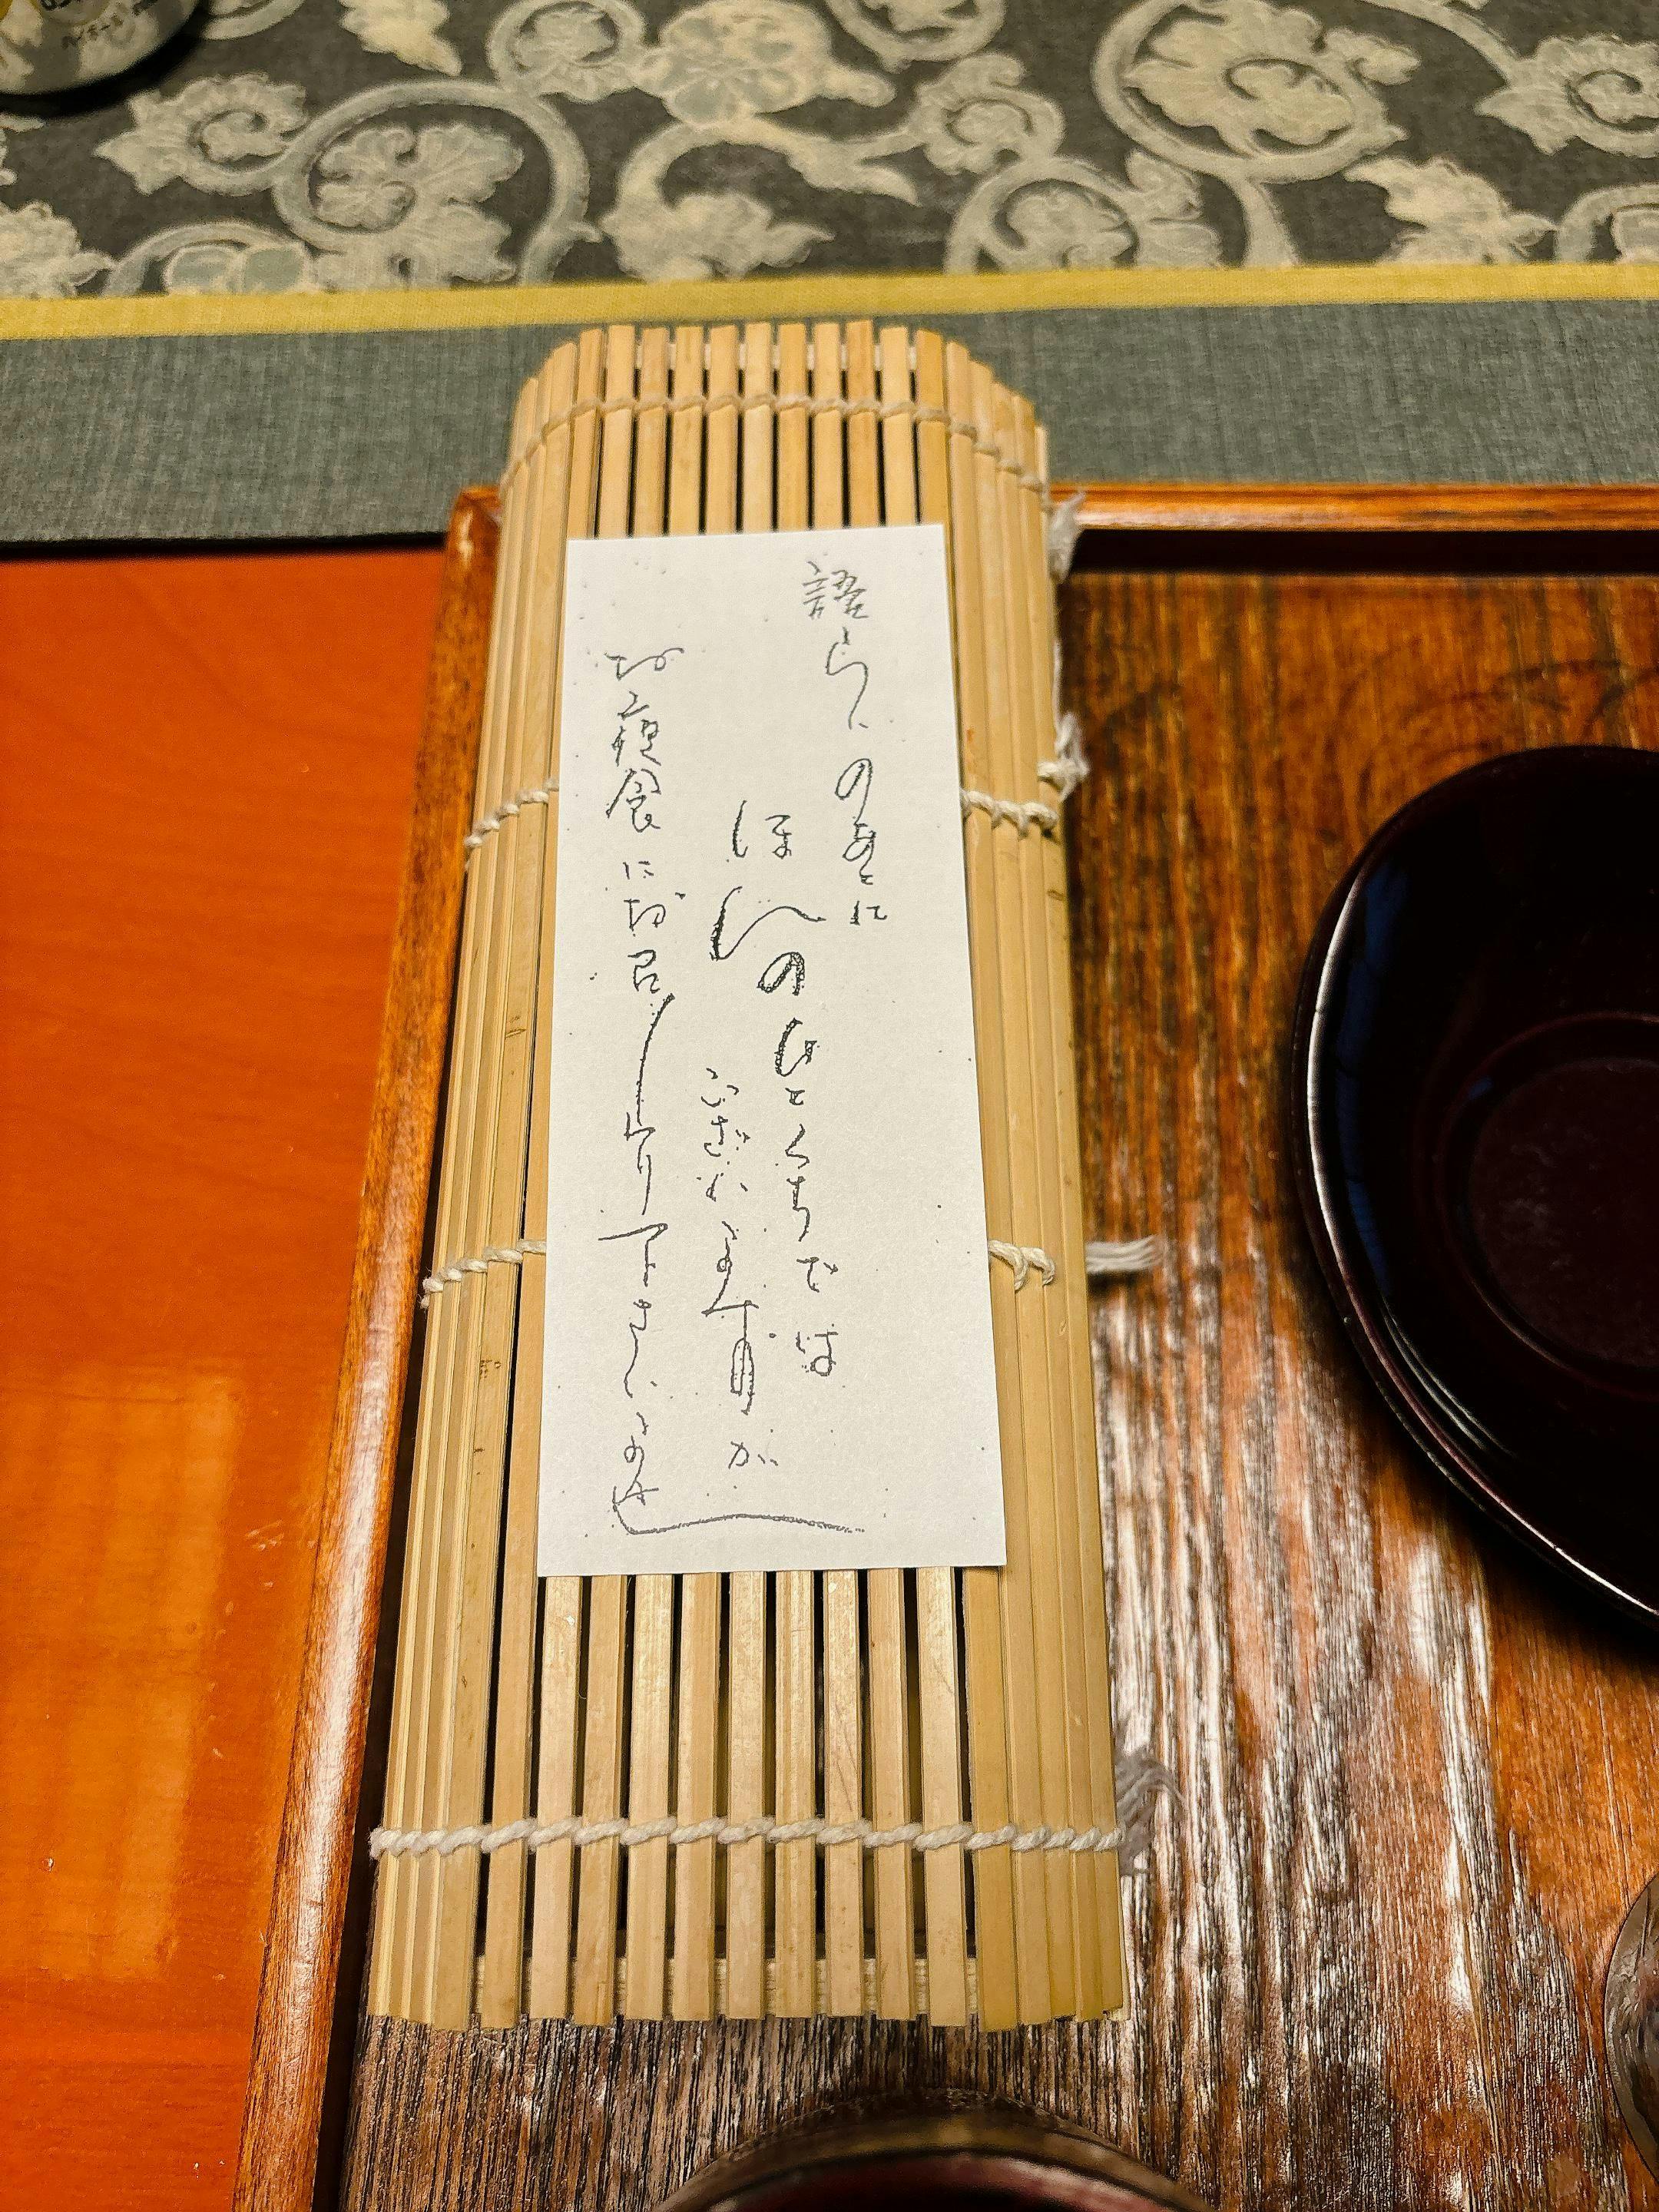 語らいのあとに
ほんのひとくちでは
ございますが
お夜食にお召し上り下さいませ